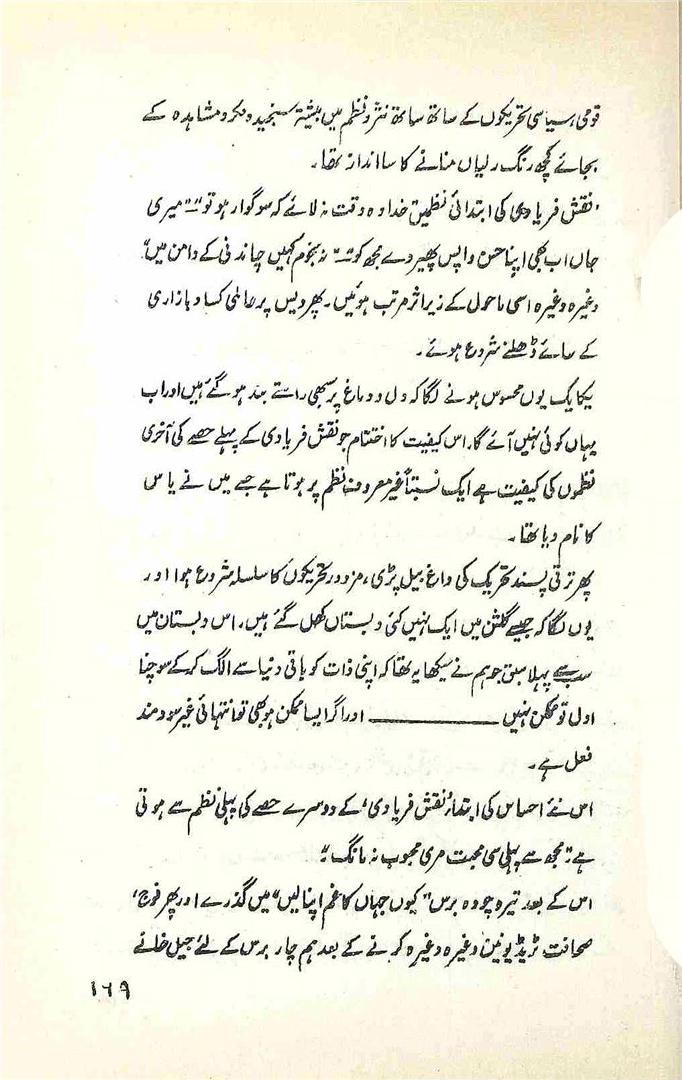 قومی، سیاسی تحریکوں کے ساتھ ساتھ نثر و نظم میں بیشتر سنجیدہ فکر و مشاہدہ کے
بجائے کچھ رنگ رلیاں منانے کا سا انداز تھا۔
'نقش فریادی کی ابتدائی نظمیں خدا وہ وقت نہ لائے کہ سوگوار ہو تو"۔" میری
جاں اب بھی اپنا حسن واپس پھیر دے مجھ کو"۔" تہ نجوم کہیں چاندنی کے دامن میں"
وغیرہ وغیرہ اسی ماحول کے زیر اثر مرتب ہوئیں۔ پھر دیس پر عالمی کساد بازاری
کے سائے ڈھلنے شروع ہوئے۔
یکایک یوں محسوس ہونے لگا کہ دل و دماغ پر سبھی راستے بند ہو گئے ہیں اور اب
یہاں کوئی نہیں آئے گا۔ اس کیفیت کا اختتام جو نقش فریادی کے پہلے حصے کی آخری
نظموں کی کیفیت ہے ایک نسبتاً غیر معروف نظم پر ہوتا ہے جسے میں نے یاس
کا نام دیا تھا۔
پھر ترقی پسند تحریک کی داغ بیل پڑی، مزدور تحریکوں کا سلسلہ شروع ہوا اور
یوں لگا کہ جیسے گلشن میں ایک نہیں کئی دبستاں کھل گئے ہیں، اس دبستان میں
سب سے پہلا سبق جو ہم نے سیکھا یہ تھا کہ اپنی ذات کو باقی دنیا سے الگ کر کے سوچنا
اول تو ممکن نہیں ــــــــــــ اور اگر ایسا ممکن ہو بھی تو انتہائی غیر سود مند
فعل ہے۔
اس نئے احساس کی ابتدا، نقش فریادی' کے دوسرے حصے کی پہلی نظم سے ہوتی
ہے: "مجھ سے پہلی سی محبت مری محبوب نہ مانگ"
اس کے بعد تیرہ چودہ برس "کیوں جہاں کا غم اپنا لیں" میں گذرے اور پھر فوج،
صحافت ٹریڈ یونین وغیرہ وغیرہ کرنے کے بعد ہم چار برس کے لئے جیل خانے
۱۶۹